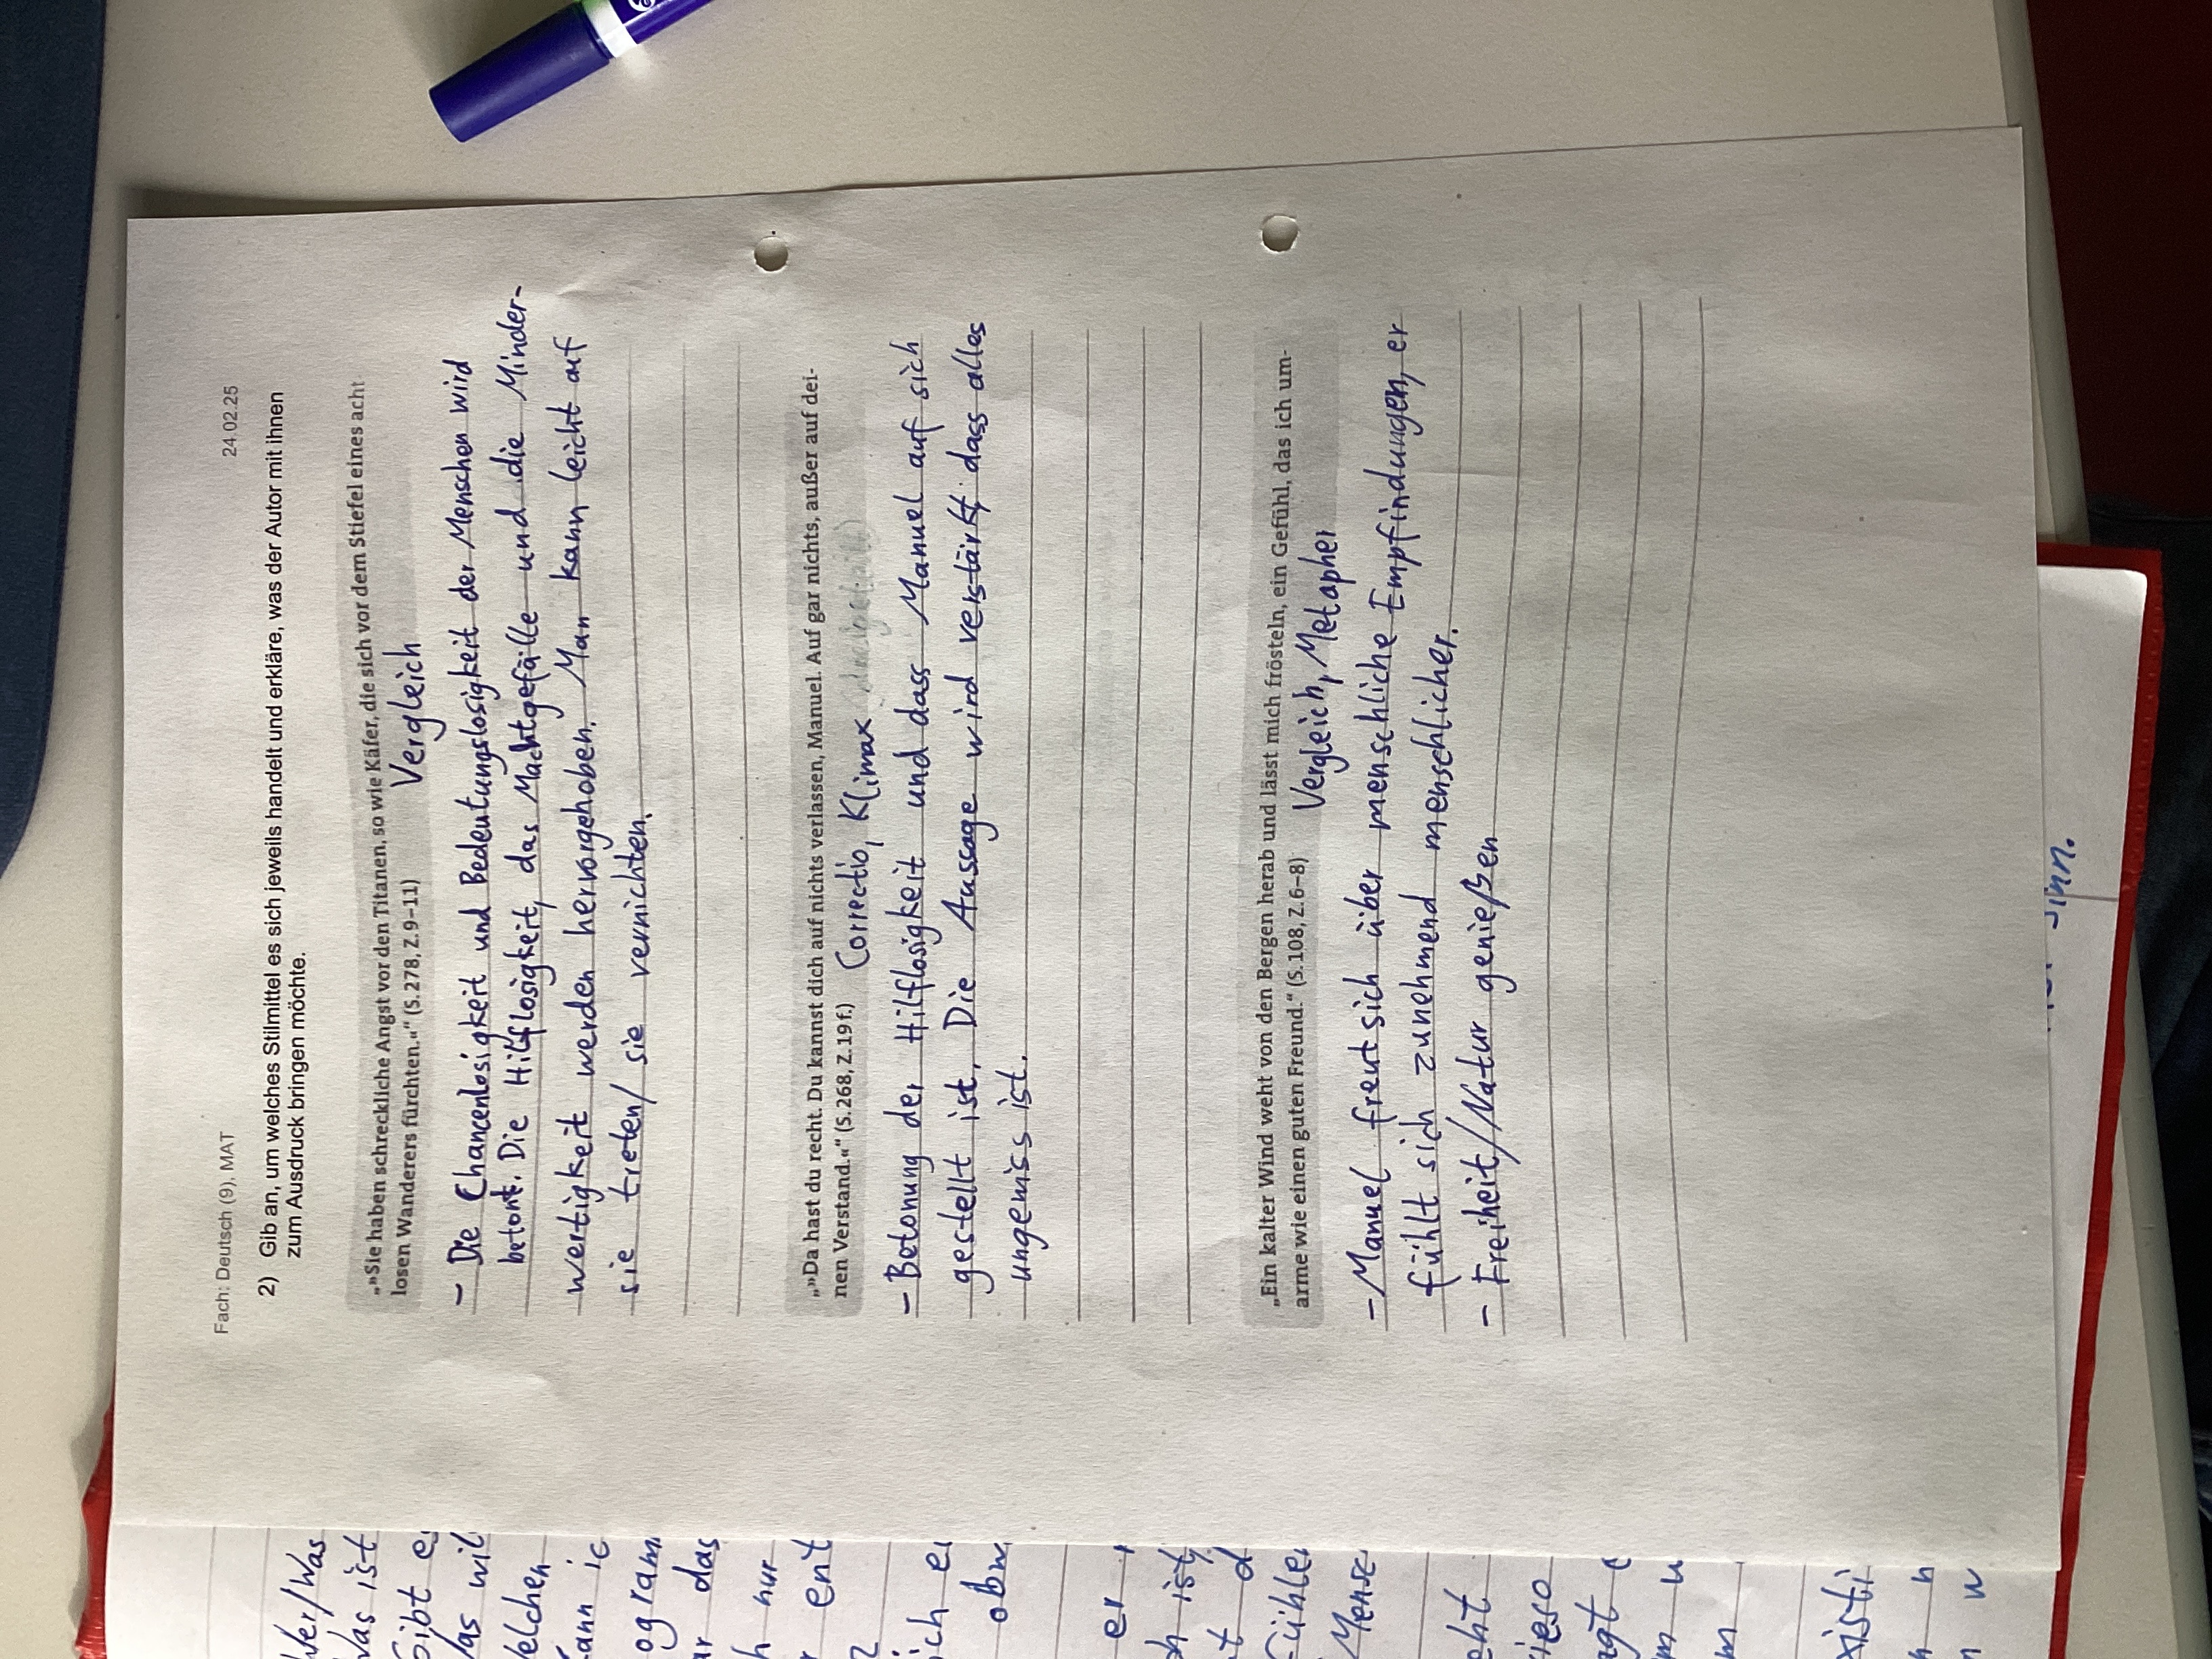 Fach: Deutsch (9), MAT 24.02.25
2) Gib an, um welches Stilmittel es sich jeweils handelt und erkläre, was der Autor mit ihnen
zum Ausdruck bringen möchte.
„»Sie haben schreckliche Angst vor den Titanen, so wie Käfer, die sich vor dem Stiefel eines acht
losen Wanderers fürchten.“ (S. 278, Z. 9–11) Vergleich
- Die Chancenlosigkeit und Bedeutungslosigkeit der Menschen wird
betont. Die Hilflosigkeit, das Machtgefälle und die Minder-
wertigkeit werden hervorgehoben. Man kann leicht auf
sie treten/ sie vernichten.
„»Da hast du recht. Du kannst dich auf nichts verlassen, Manuel. Auf gar nichts, außer auf dei-
nen Verstand.«“ (S. 268, Z. 19 f.) Correctio, Klimax
- Betonung der Hilflosigkeit und dass Manuel auf sich
gestellt ist. Die Aussage wird verstärkt dass alles
ungewiss ist.
„Ein kalter Wind weht von den Bergen herab und lässt mich frösteln, ein Gefühl, das ich um-
arme wie einen guten Freund.“ (S. 108, Z. 6–8) Vergleich, Metapher
- Manuel freut sich über menschliche Empfindungen, er
fühlt sich zunehmend menschlicher.
- Freiheit/Natur genießen
Wer/Was
Was ist
Gibt e
Was wil
Welchen
Kann ic
ogram
ur das
h nur
ent
ich e
obw
er
h ist,
t d
Fühle
Mensc
eht
ieso
agt
m u
m
xisti
n n
n w
Sinn.